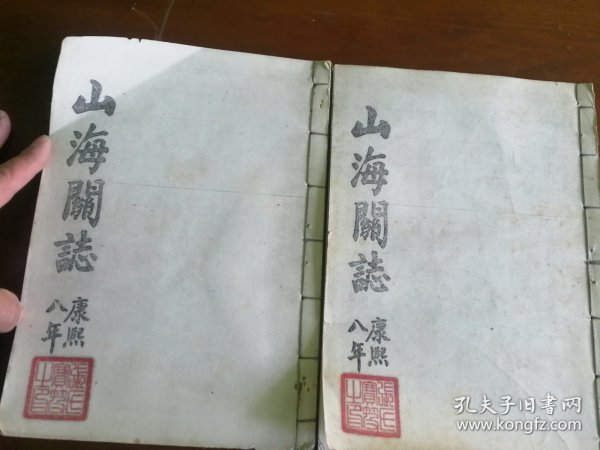 山海關誌
康熙
八年
山海關誌
康熙
八年
孔夫子旧书网
www.kongfz.com